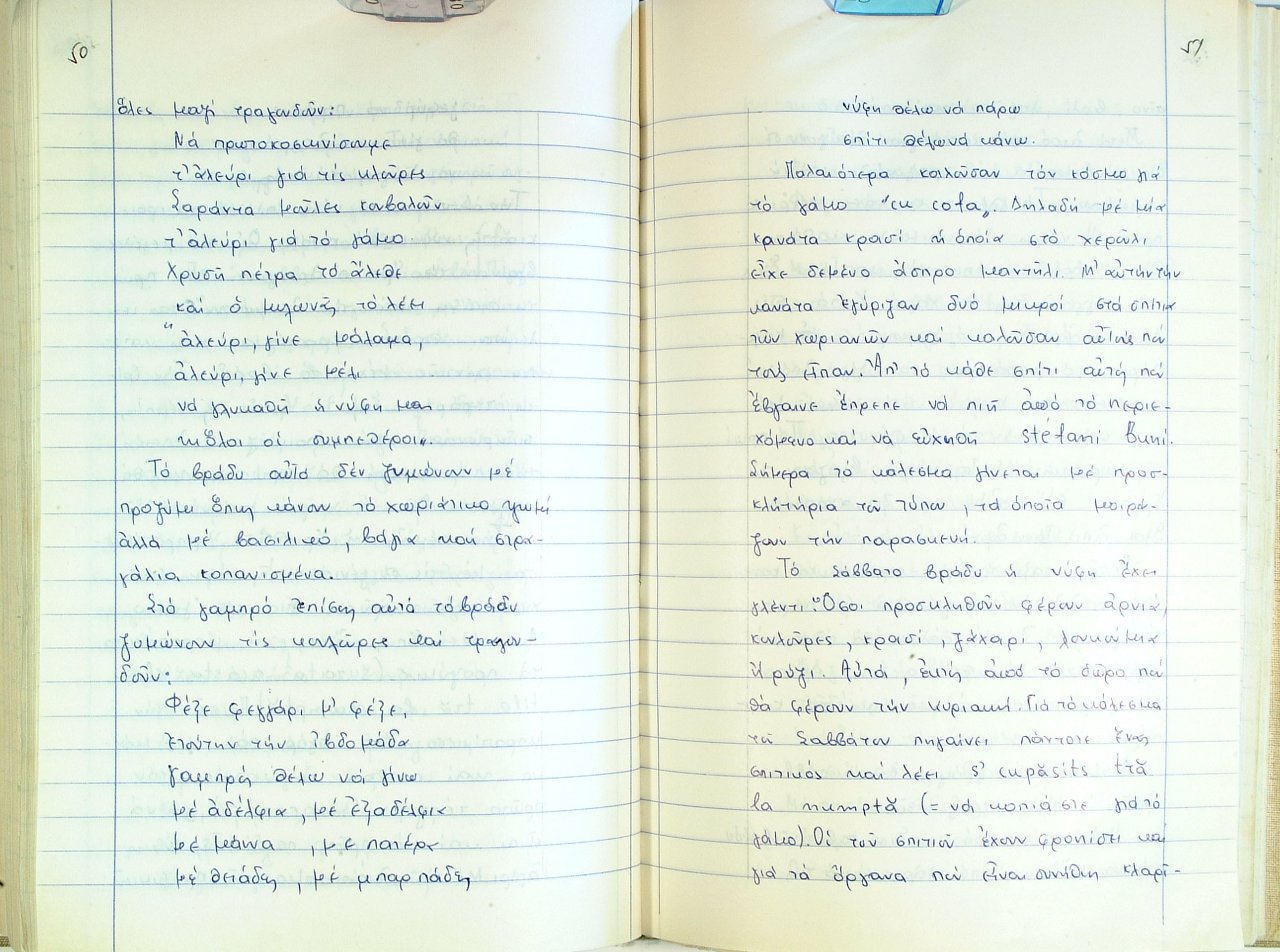 50
ὅλες μαζί τραγουδοῦν:
Νά πρωτοκοσκινίσουμε
τ' ἀλεύρι γιά τίς κλοῦρες
Σαράντα μοῦλες κουβαλοῦν
τ' ἀλεύρι γιά τό γάμο
Χρυσή πέτρα τό ἄλεθε
καί ὁ μυλωνᾶς τό λέει
"ἀλεύρι, γίνε μάλαμα,
ἀλεύρι, γίνε μέλι
νά γλυκαθῆ ἡ νύφη μας
κι ὅλοι οἱ συμπεθέροι".
Τό βράδυ αὐτό δέν ζυμώνουν μέ
προζύμι ὅπως κάνουν τό χωριάτικο ψωμί
ἀλλά μέ βασιλικό, βάγια καί στρα-
γάλια κοπανισμένα.
Στό γαμπρό ἐπίσης αὐτό τό βράδυ
ζυμώνουν τίς κουλοῦρες καί τραγου-
δοῦν:
Φέξε φεγγάρι μ' φέξε,
ἐτούτην τήν ἑβδομάδα
γαμπρός θέλω νά γίνω
μέ ἀδέλφια, μέ ἐξαδέλφια
μέ μάνα, μέ πατέρα
μέ θειάδες, μέ μπαρπάδες
51
νύφη θέλω νά πάρω
σπίτι θέλω νά κάνω.
Παλαιότερα καλοῦσαν τόν κόσμο γιά
τό γάμο "cu cofa". Δηλαδή μέ μία
κανάτα κρασί ἡ ὁποία στό χερούλι
εἶχε δεμένο ἄσπρο μαντήλι. Μ' αὐτήν τήν
κανάτα ἐγύριζαν δυό μικροί στά σπίτια
τῶν χωριανῶν καί καλοῦσαν αὐτούς πού
τούς εἶπαν. Ἀπ' τό κάθε σπίτι αὐτή πού
ἔβγαινε ἔπρεπε νά πιῆ ἀπό τό περιε-
χόμενο καί νά εὐχηθῆ stefani buni.
Σήμερα τό κάλεσμα γίνεται μέ προσ-
κλητήρια τοῦ τύπου, τά ὁποῖα μοιρά-
ζουν τήν παρασκευή.
Τό Σάββατο βράδυ ἡ νύφη ἔχει
γλέντι. Ὅσοι προσκληθοῦν φέρουν ἀρνιά,
κουλοῦρες, κρασί, ζάχαρι, λουκούμια
ἤ ρύζι. Αὐτά, ἐκτός ἀπό τό δῶρο πού
θά φέρουν τήν κυριακή. Γιά τό κάλεσμα
τοῦ Σαββάτου πηγαίνει πάντοτε ἕνας
σπιτικός καί λέει s' cupăsits ttă
la numptă (= νά κοπιάστε γιά τό
γάμο). Οἱ τοῦ σπιτιοῦ ἔχουν φροντίσει καί
γιά τά ὄργανα πού εἶναι συνήθως κλαρῖ-